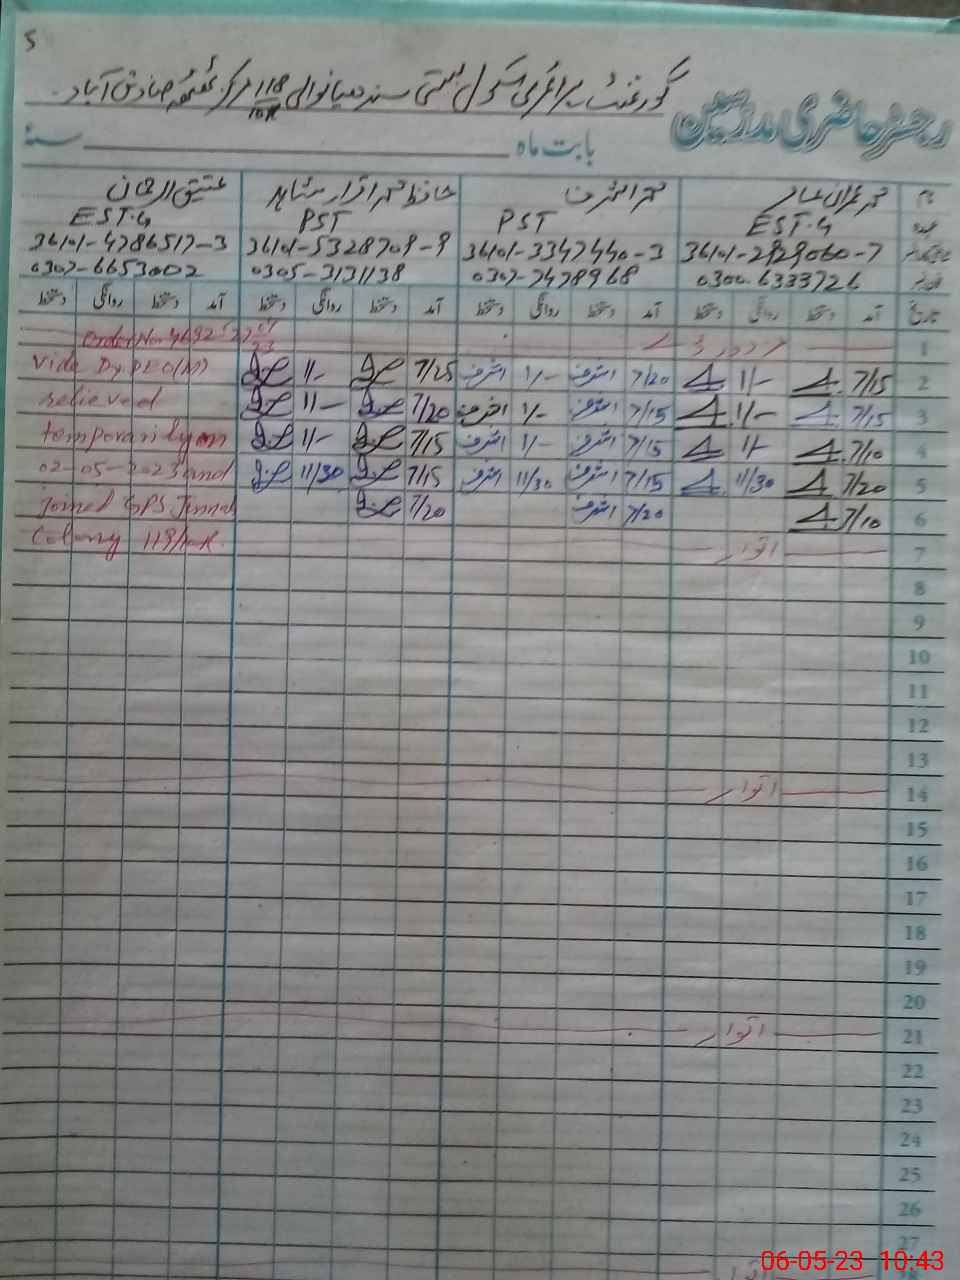 5
گورنمنٹ پرائمری سکول بستی سندھیانوالی 118/10R مرکز ٹھٹھہ صادق آباد
رجسٹر حاضری مدرسین
بابت ماہ سنہ
نام محمد عمران محمد اشرف حافظ محمد اقرار عتیق الرحمان
عہدہ EST.G PST PST EST.G
36101-2929060-7 36101-3347440-3 36101-5328709-9 36101-4786517-3
0300-6333726 0307-7478968 0305-3131138 0307-6653002
تاریخ آمد دستخط روانگی دستخط آمد دستخط روانگی دستخط آمد دستخط روانگی دستخط آمد دستخط روانگی دستخط
1 Order No
2 7/15 1/- 7/20 اشرف 1/- اشرف 7/25 11/- Vide Dy DEO(M)
3 7/15 1/- 7/15 اشرف 1/- اشرف 7/20 11/- relieved
4 7/10 1/- 7/15 اشرف 1/- اشرف 7/15 11/- temporarily on
5 7/20 11/30 7/15 اشرف 11/30 اشرف 7/15 11/30 02-05-2023 and
6 7/10 7/20 اشرف 7/20 Joined GPS Jinnah
7 اتوار Colony 118/10R.
8
9
10
11
12
13
14 اتوار
15
16
17
18
19
20
21 اتوار
22
23
24
25
26
27
06-05-23 10:43